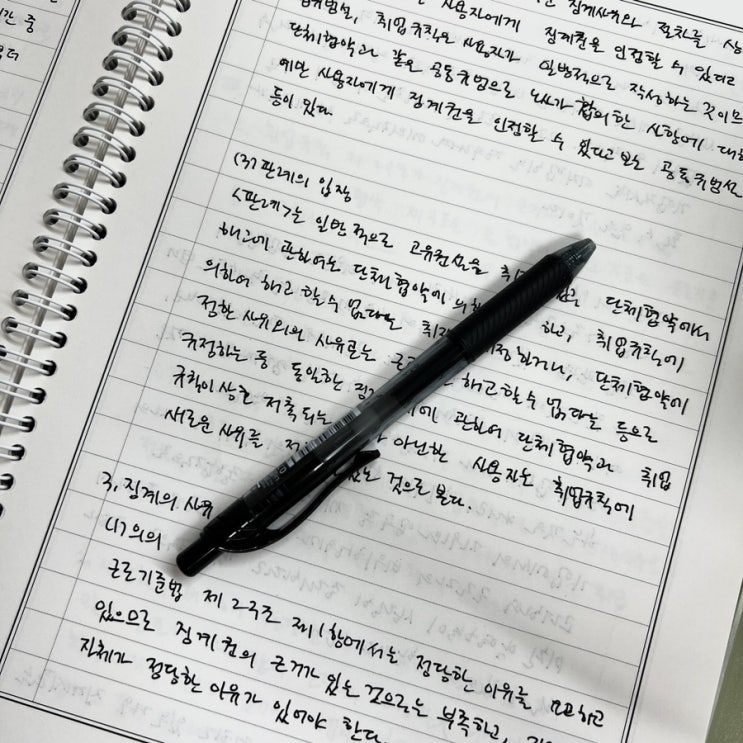 간 중
징계사유와 절차를 상
사용자에게 징계권을 인정할 수 있다고
취업규칙은 사용자가 일방적으로 작성하는 것이므
단체협약과 같은 공동규범으로 노사가 합의한 사항에 대해
에만 사용자에게 징계권을 인정할 수 있다고 보는 공동규범설
등이 있다.
(3) 판례의 입장
<판례>는 일반적으로 고유권설을 취 단체협약에서
해고에 관하여는 단체협약에 의해 하고, 취업규칙에
의하여 해고할 수 없다는 취 정하거나, 단체협약에
정한 사유외의 사유로는 근 해고할 수 없다는 등으로
규정하는 등 동일한 징 에 관하여 단체협약과 취업
규칙이 상호 저촉되는 아닌한 사용자는 취업규칙에
새로운 사유를 있는 것으로 본다.
3. 징계의 사유
(1) 의의
근로기준법 제23조 제1항에서는 정당한 이유를 요하고
있으므로 징계권의 근거가 있는 것으로는 부족하고,
자체가 정당한 이유가 있어야 한다.